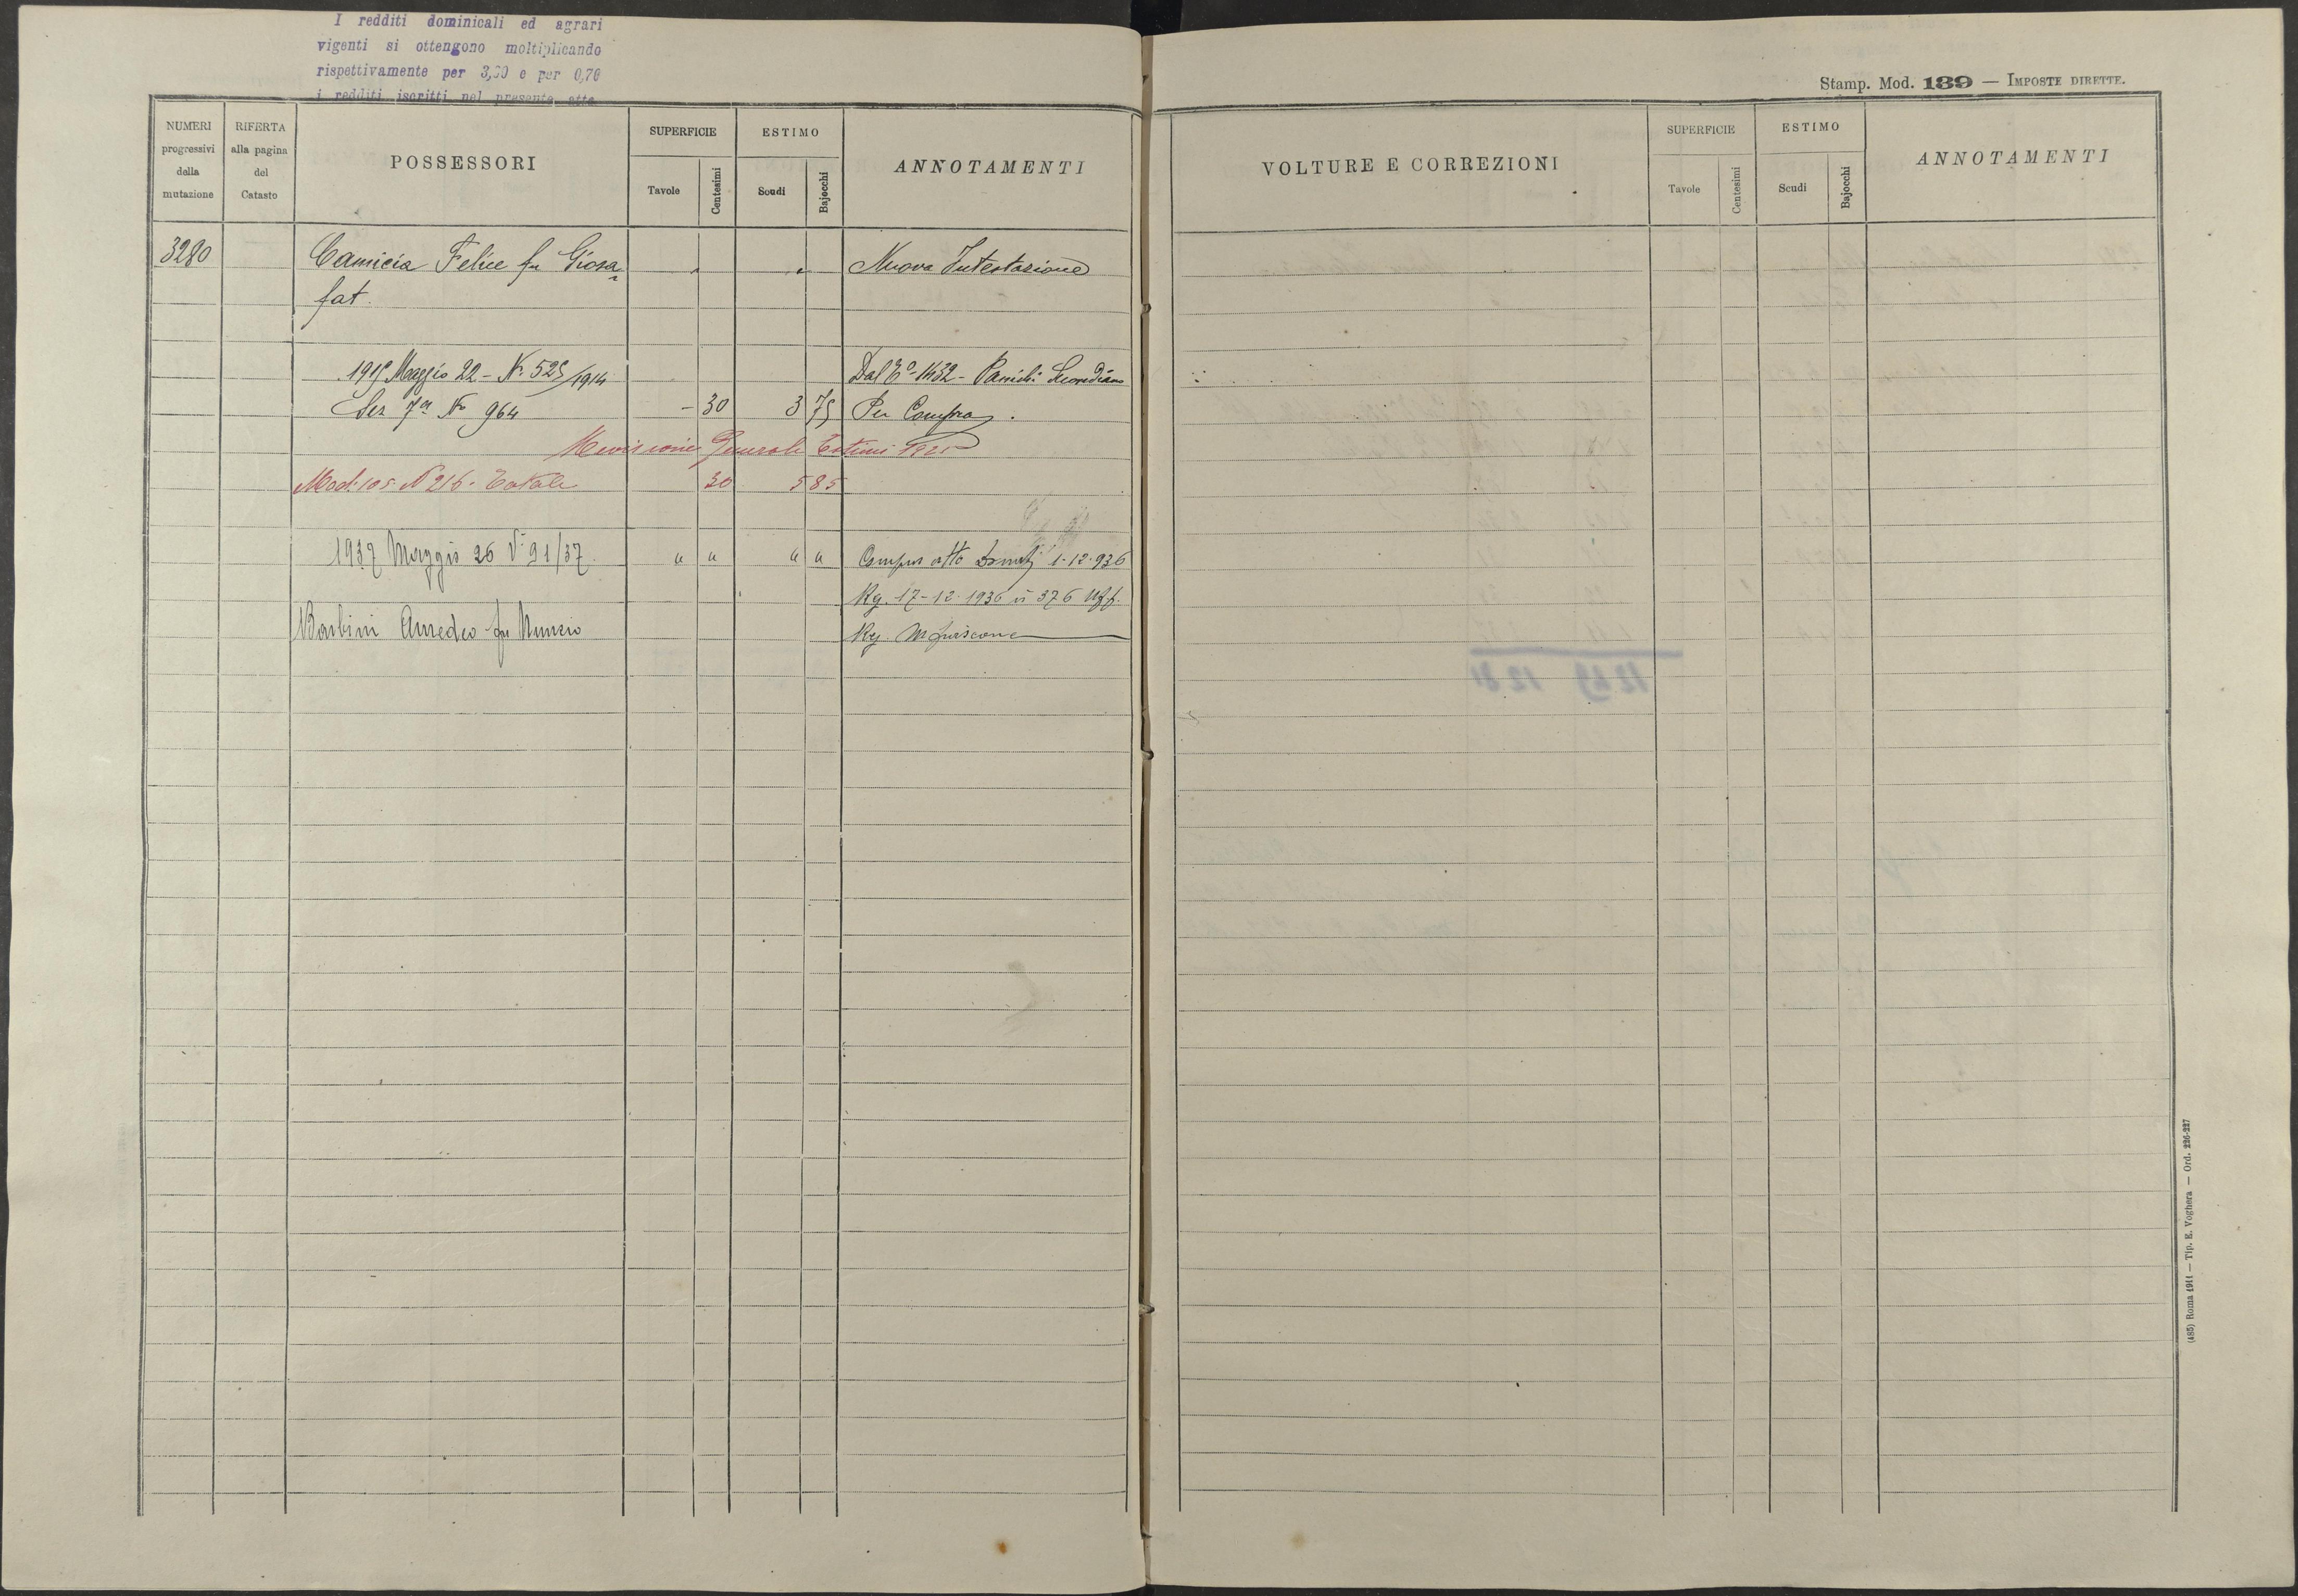 I redditi dominicali ed agrari
vigenti si ottengono moltiplicando
rispettivamente per e per 0,70
i redditi iscritti nel presente atto
NUMERI progressivi della mutazione
RIFERTA alla pagina del Catasto
POSSESSORI
SUPERFICIE
Tavole
Centesimi
ESTIMO
Scudi
Bajocchi
ANNOTAMENTI
3280 Camicia Felice fu Giosa Nuova Intestazione
fat.
Maggio 22 - N. 525/1914 Dal 1432 - Secondiano
Ser 7a No 964 - 30 3 75 Per Compra.
Revisione Generale Estimi
Mod: 105 N 216 - Totale 30 5 85
1937 Maggio 26 N. 91/37. " " " " Compra atto 1-12-936
Rg. 17-12-1936 n 376 Uff.
Barbini Amedeo fu Nunzio Rg.
Stamp. Mod. 139 — IMPOSTE DIRETTE.
VOLTURE E CORREZIONI
SUPERFICIE
Tavole
Centesimi
ESTIMO
Scudi
Bajocchi
ANNOTAMENTI
(485) Roma 1911 — Tip. E. Voghera — Ord. 226-227